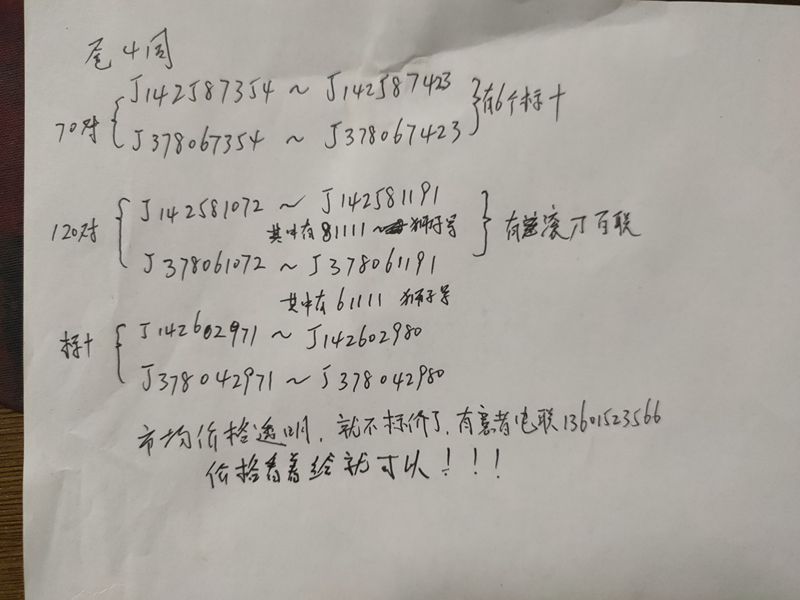 尾4同
70对 { J142587354 ~ J142587423
J378067354 ~ J378067423 } 有6个标十
120对 { J142581072 ~ J142581191
其中有81111 ~ 狮子号
J378061072 ~ J378061191 } 有滚刀百联
其中有61111 狮子号
标十 { J142602971 ~ J142602980
J378042971 ~ J378042980
市均价格透明，就不标价了，有意者电联13601523566
价格看着给就可以！！！